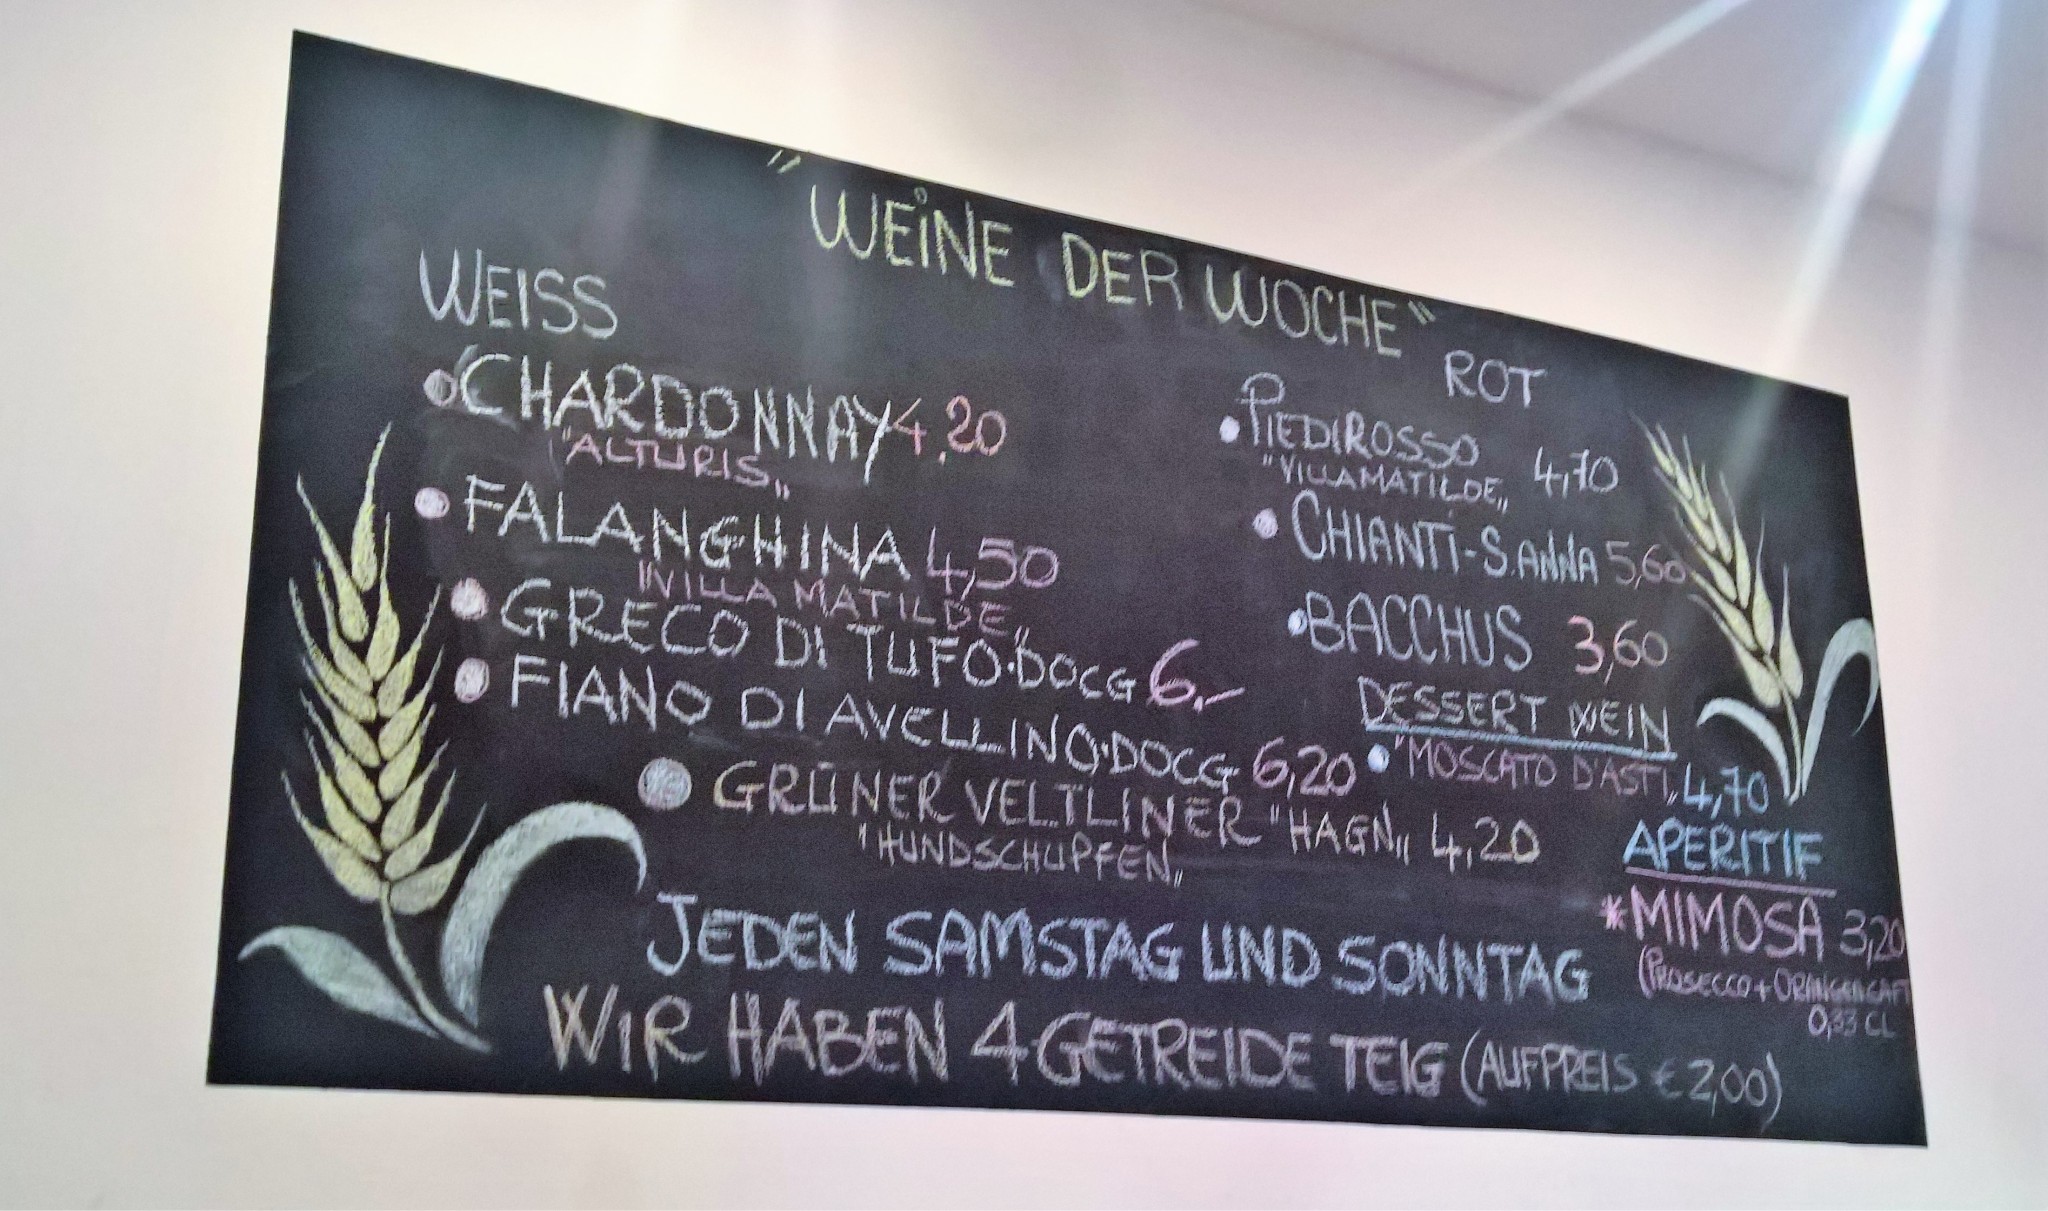 "WEINE DER WOCHE"
WEISS
CHARDONNAY 4,20
"ALTURIS„
FALANGHINA 4,50
"VILLA MATILDE„
GRECO DI TUFO·DOCG 6,-
FIANO DI AVELLINO·DOCG 6,20
GRÜNER VELTLINER "HAGN„ 4,20
"HUNDSCHUPFEN„
ROT
PIEDIROSSO
"VILLAMATILDE„ 4,70
CHIANTI-S.ANNA 5,60
BACCHUS 3,60
DESSERT WEIN
"MOSCATO D'ASTI„ 4,70
APERITIF
*MIMOSA 3,20
(PROSECCO + ORANGENSAFT
0,33 CL
JEDEN SAMSTAG UND SONNTAG
WIR HABEN 4·GETREIDE TEIG (AUFPREIS € 2,00)